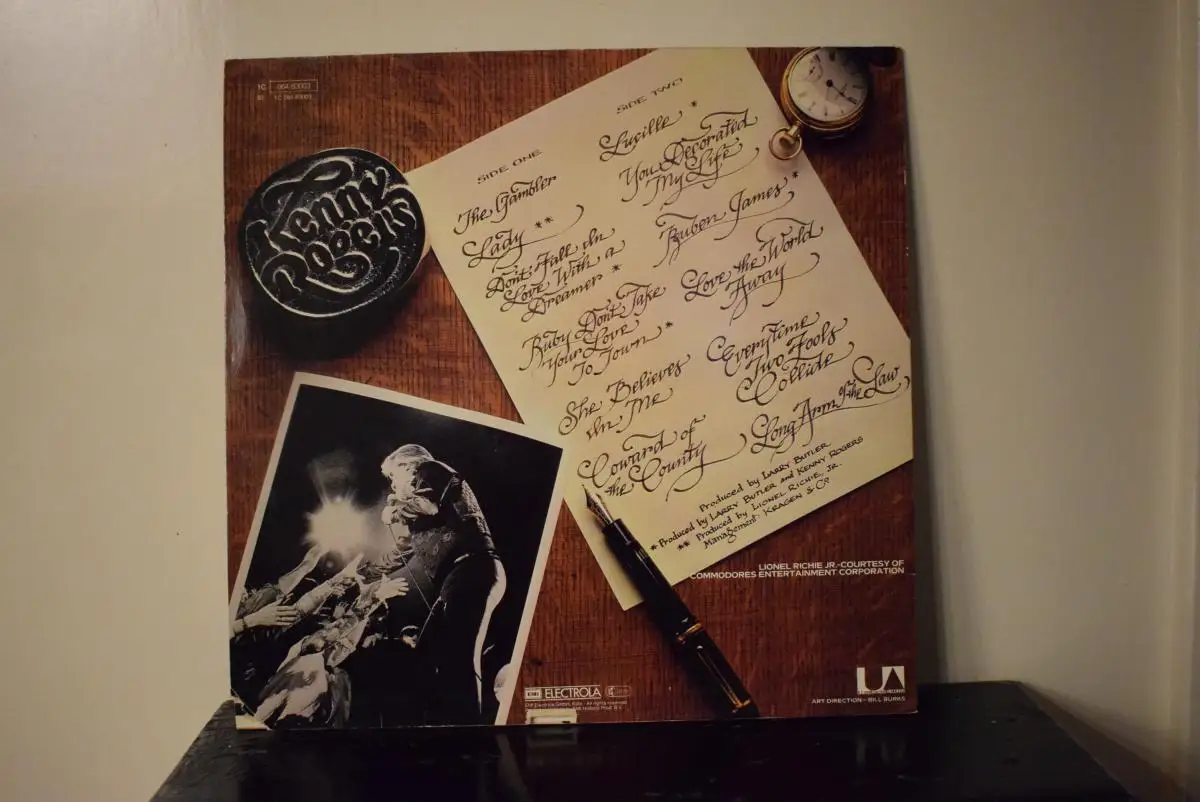 1C 064-83003
Kenny
Rogers
SIDE ONE
The Gambler
Lady **
Don't Fall In
Love With a
Dreamer *
Ruby Don't Take
Your Love
To Town *
She Believes
In Me
Coward of
the County
SIDE TWO
Lucille *
You Decorated
My Life
Ruben James *
Love the World
Away
Everytime
Two Fools
Collide
Long Arm of the Law
Produced by LARRY BUTLER
* Produced by LARRY BUTLER and KENNY ROGERS
** Produced by LIONEL RICHIE, JR.
Management: KRAGEN & Co
LIONEL RICHIE JR.-COURTESY OF
COMMODORES ENTERTAINMENT CORPORATION
EMI ELECTROLA
UA
ART DIRECTION-BILL BURKS